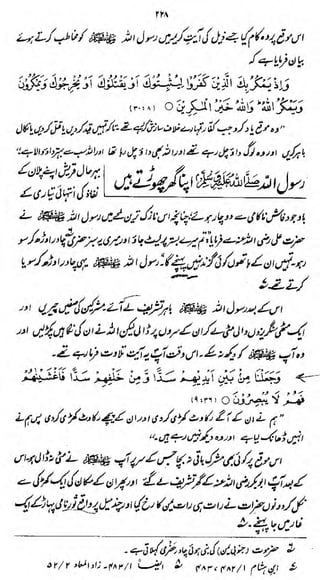 ۲۲۸
اس موقع پر وہ کام کیا جسے ذیل کی آیت کریمہ میں رسول اللہ ﷺ کو مخاطب کرتے ہوئے
بیان فرمایا ہے کہ
وَاِذْ يَمْكُرُ بِكَ الَّذِيْنَ كَفَرُوْا لِيُثْبِتُوْكَ اَوْ يَقْتُلُوْكَ اَوْ يُخْرِجُوْكَ وَيَمْكُرُوْنَ
وَيَمْكُرُ اللّٰهُ وَاللّٰهُ خَيْرُ الْمٰكِرِيْنَ ○ (۳۰:۸)
”وہ موقع یاد کرو جب کفار تمہارے خلاف سازش کر رہے تھے تاکہ تمہیں قید کر دیں یا قتل کر دیں یا نکال
باہر کریں اور وہ لوگ داؤ چل رہے تھے اور اللہ بھی داؤ چل رہا تھا اور اللہ سب سے بہتر داؤ والا ہے۔“
رسول اللہ ﷺ اپنا گھر چھوڑتے ہیں
بہرحال قریش اپنے پلان کے
نفاذ کی انتہائی تیاری کے
باوجود فاش ناکامی سے دوچار ہوئے؛ چنانچہ اس نازک ترین لمحے میں رسول اللہ ﷺ نے
حضرت علی رضی اللہ عنہ سے فرمایا تم میرے بستر پر لیٹ جاؤ اور میری یہ سبز حضرمی چادر اوڑھ کر سو
رہو، تمہیں ان کے ہاتھوں کوئی گزند نہیں پہنچے گا۔ رسول اللہ ﷺ یہی چادر اوڑھ کر سویا
کرتے تھے۔
اس کے بعد رسول اللہ ﷺ باہر تشریف لے آئے، مشرکین کی صفیں چیریں اور
ایک مٹھی سنگریزوں والی مٹی لے کر ان کے سروں پر ڈالی لیکن اللہ نے ان کی نگاہیں پکڑ لیں اور
وہ آپ ﷺ کو دیکھ نہ سکے۔ اس وقت آپ یہ آیت تلاوت فرما رہے تھے۔
وَجَعَلْنَا مِنْ بَيْنِ اَيْدِيْهِمْ سَدًّا وَّمِنْ خَلْفِهِمْ سَدًّا فَاَغْشَيْنٰهُمْ
فَهُمْ لَا يُبْصِرُوْنَ ○ (۹:۳۶)
”ہم نے ان کے آگے رکاوٹ کھڑی کر دی اور ان کے پیچھے رکاوٹ کھڑی کر دی پس ہم نے
انہیں ڈھانک لیا ہے اور وہ دیکھ نہیں رہے ہیں۔“
اس موقع پر کوئی بھی مشرک باقی نہ بچا جس کے سر پر آپ ﷺ نے مٹی نہ ڈالی ہو، اس
کے بعد آپ ابوبکر رضی اللہ عنہ کے گھر تشریف لے گئے اور پھر ان کے مکان کی ایک کھڑکی سے
نکل کر دونوں حضرات نے رات ہی رات یمن کا رخ کیا اور چند میل پر واقع ثور نامی پہاڑ کے ایک
غار میں جا پہنچے۔
حضرموت (جنوبی یمن) کی بنی ہوئی چادر حضرمی کہلاتی ہے۔
ابن ہشام ۱/۴۸۲، ۴۸۳ ایضاً ۱/۴۸۳، زاد المعاد ۲/۵۲